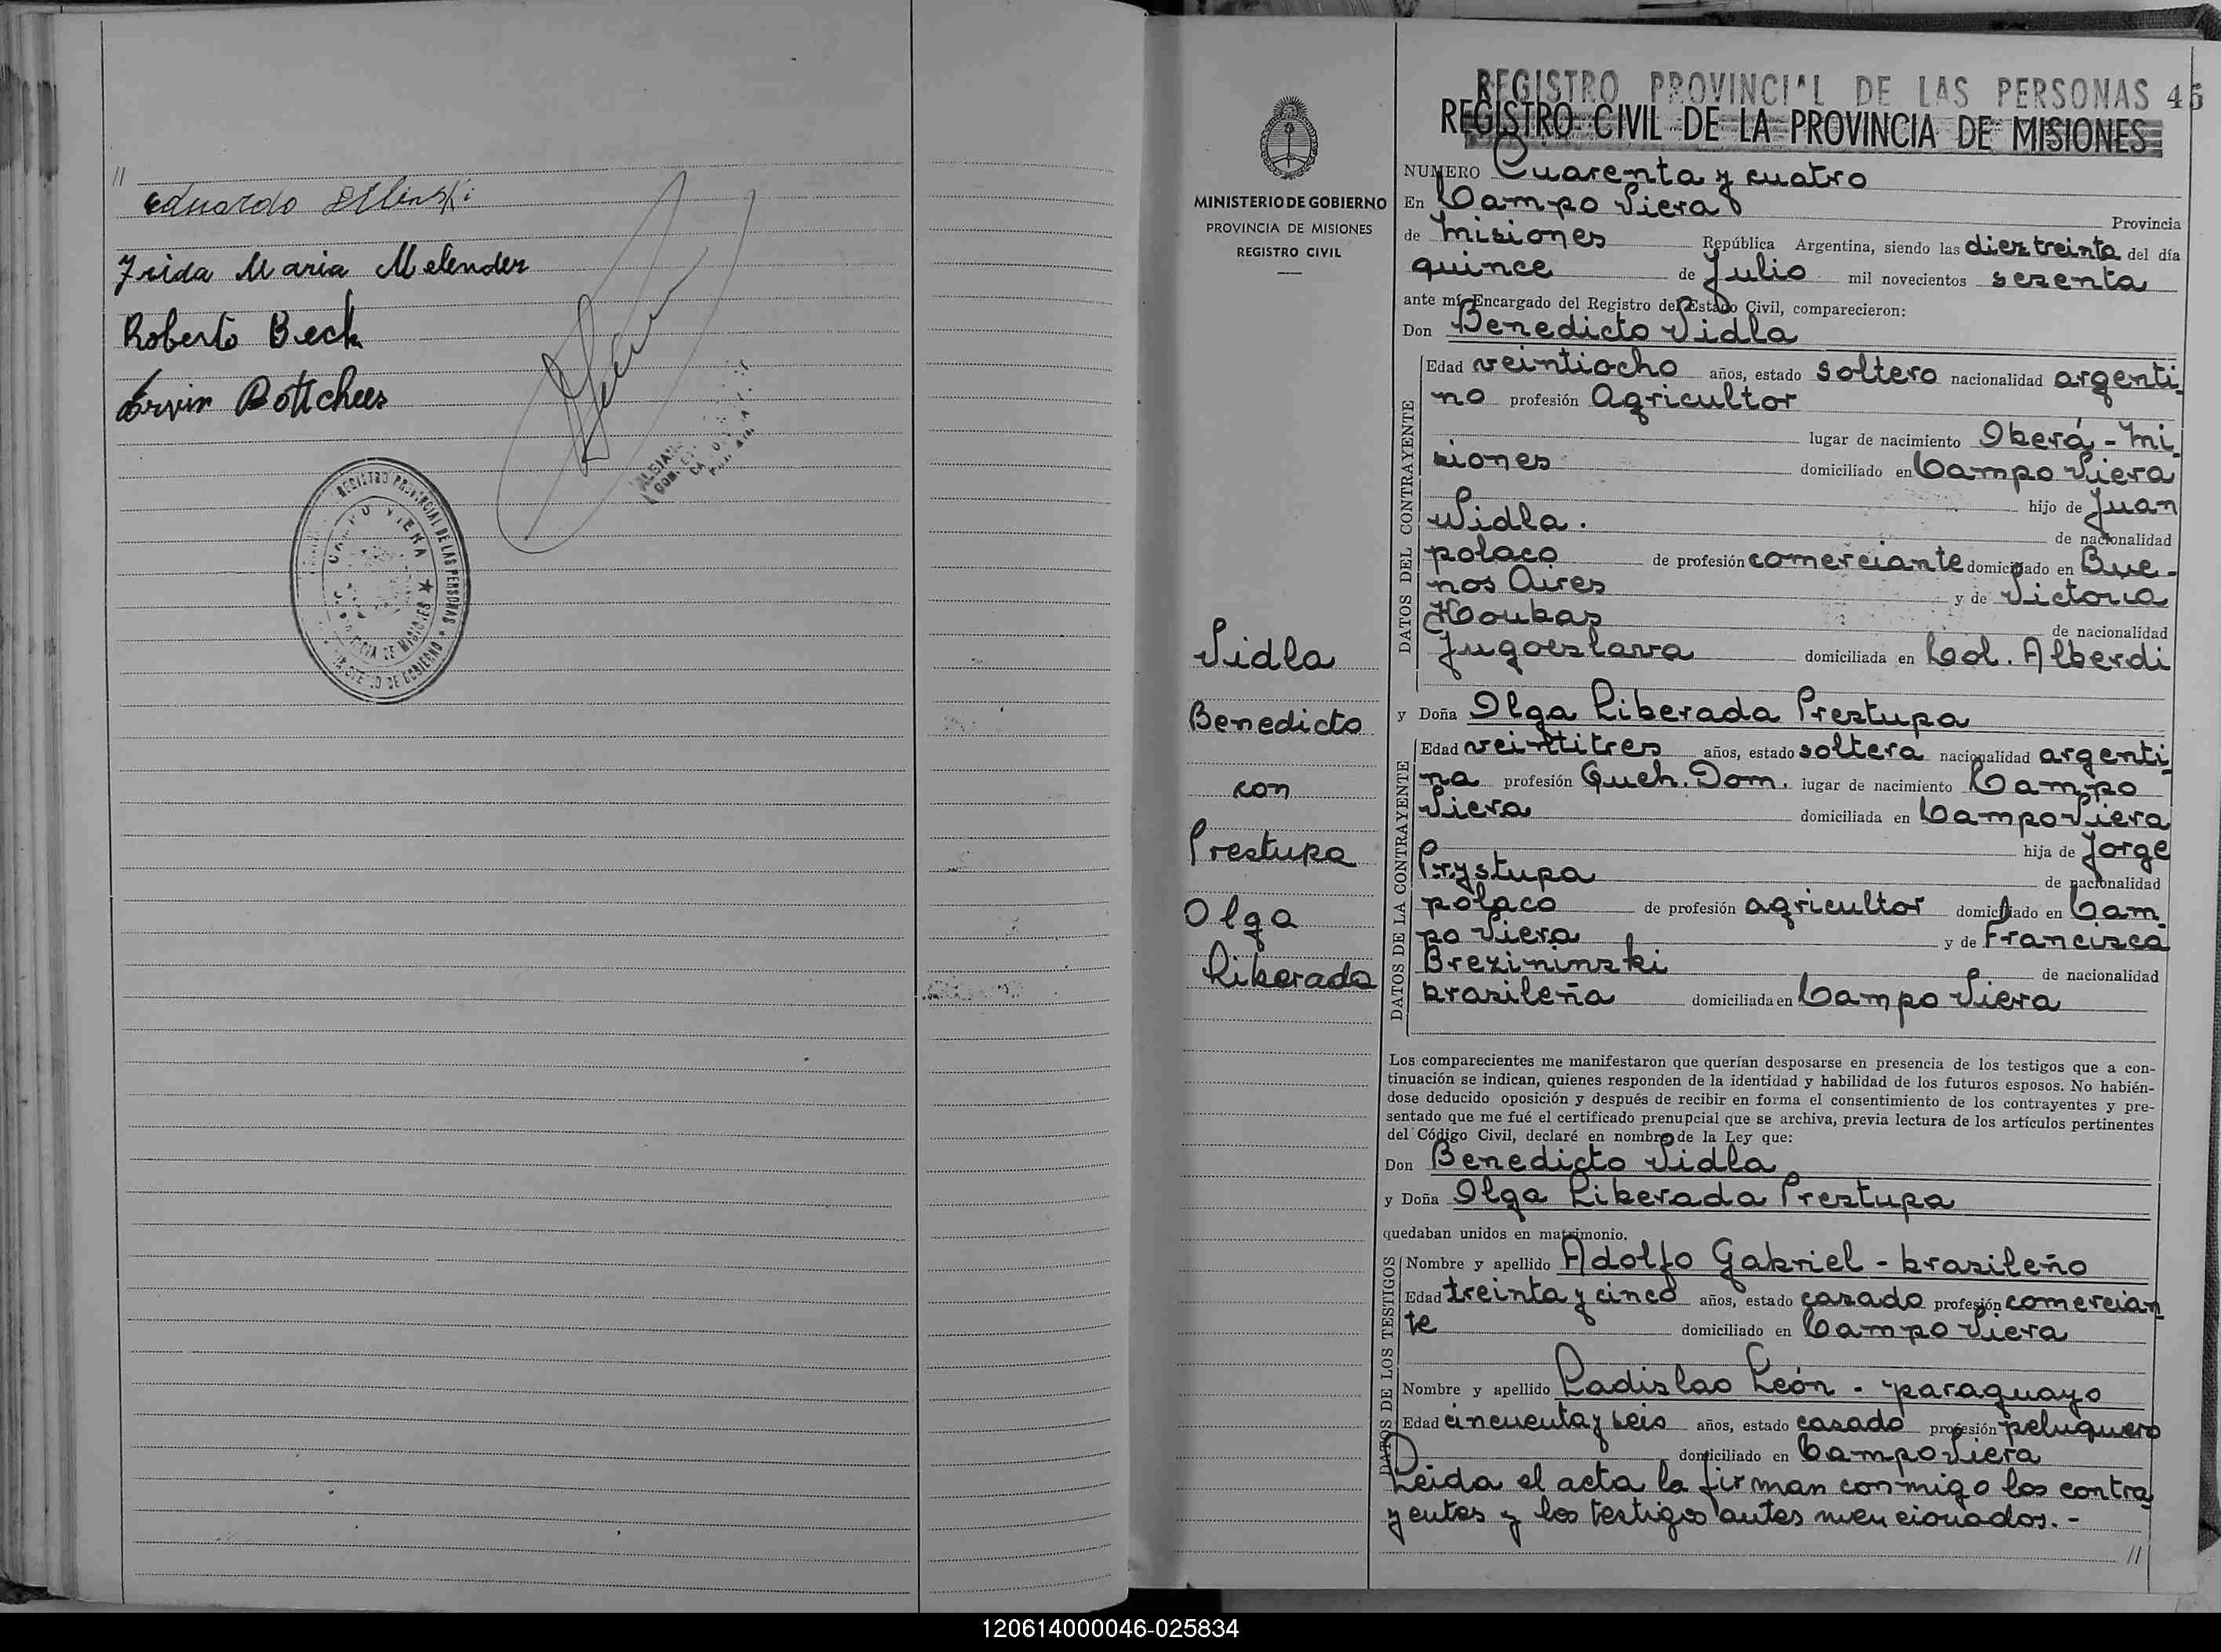 //
Eduardo
Frida Maria Melender
Roberto Beck
Ervin Bottcher
REGISTRO PROVINCIAL DE LAS PERSONAS
CAMPO VIERA
PROVINCIA DE MISIONES
MINISTERIO DE GOBIERNO
MINISTERIO DE GOBIERNO
PROVINCIA DE MISIONES
REGISTRO CIVIL
Vidla
Benedicto
con
Prestupa
Olga
Liberada
REGISTRO PROVINCIAL DE LAS PERSONAS 45
REGISTRO CIVIL DE LA PROVINCIA DE MISIONES
NUMERO Cuarenta y cuatro
En Campo Viera Provincia
de Misiones República Argentina, siendo las diez treinta del día
quince de Julio mil novecientos sesenta
ante mí, Encargado del Registro del Estado Civil, comparecieron:
Don Benedicto Vidla
DATOS DEL CONTRAYENTE
Edad veintiocho años, estado soltero nacionalidad argenti
no profesión Agricultor
lugar de nacimiento Oberá - Mi
siones domiciliado en Campo Viera
hijo de Juan
Vidla. de nacionalidad
polaco de profesión comerciante domiciliado en Bue-
nos Aires y de Victoria
Houkas de nacionalidad
Jugoeslava domiciliada en Col. Alberdi
y Doña Olga Liberada Prestupa
DATOS DE LA CONTRAYENTE
Edad veintitres años, estado soltera nacionalidad argenti
na profesión Queh. Dom. lugar de nacimiento Campo
Viera domiciliada en Campo Viera
hija de Jorge
Prystupa de nacionalidad
polaco de profesión agricultor domiciliado en Cam
po Viera y de Francisca
Brezininski de nacionalidad
brasileña domiciliada en Campo Viera
Los comparecientes me manifestaron que querían desposarse en presencia de los testigos que a con-
tinuación se indican, quienes responden de la identidad y habilidad de los futuros esposos. No habién-
dose deducido oposición y después de recibir en forma el consentimiento de los contrayentes y pre-
sentado que me fué el certificado prenupcial que se archiva, previa lectura de los artículos pertinentes
del Código Civil, declaré en nombre de la Ley que:
Don Benedicto Vidla
y Doña Olga Liberada Prestupa
quedaban unidos en matrimonio.
DATOS DE LOS TESTIGOS
Nombre y apellido Adolfo Gabriel - brasileño
Edad treinta y cinco años, estado casado profesión comercian
te domiciliado en Campo Viera
Nombre y apellido Ladislao León - paraguayo
Edad cincuenta y seis años, estado casado profesión peluquero
domiciliado en Campo Viera
Leida el acta la firman conmigo los contra
yentes y los testigos antes mencionados. -
//
120614000046-025834